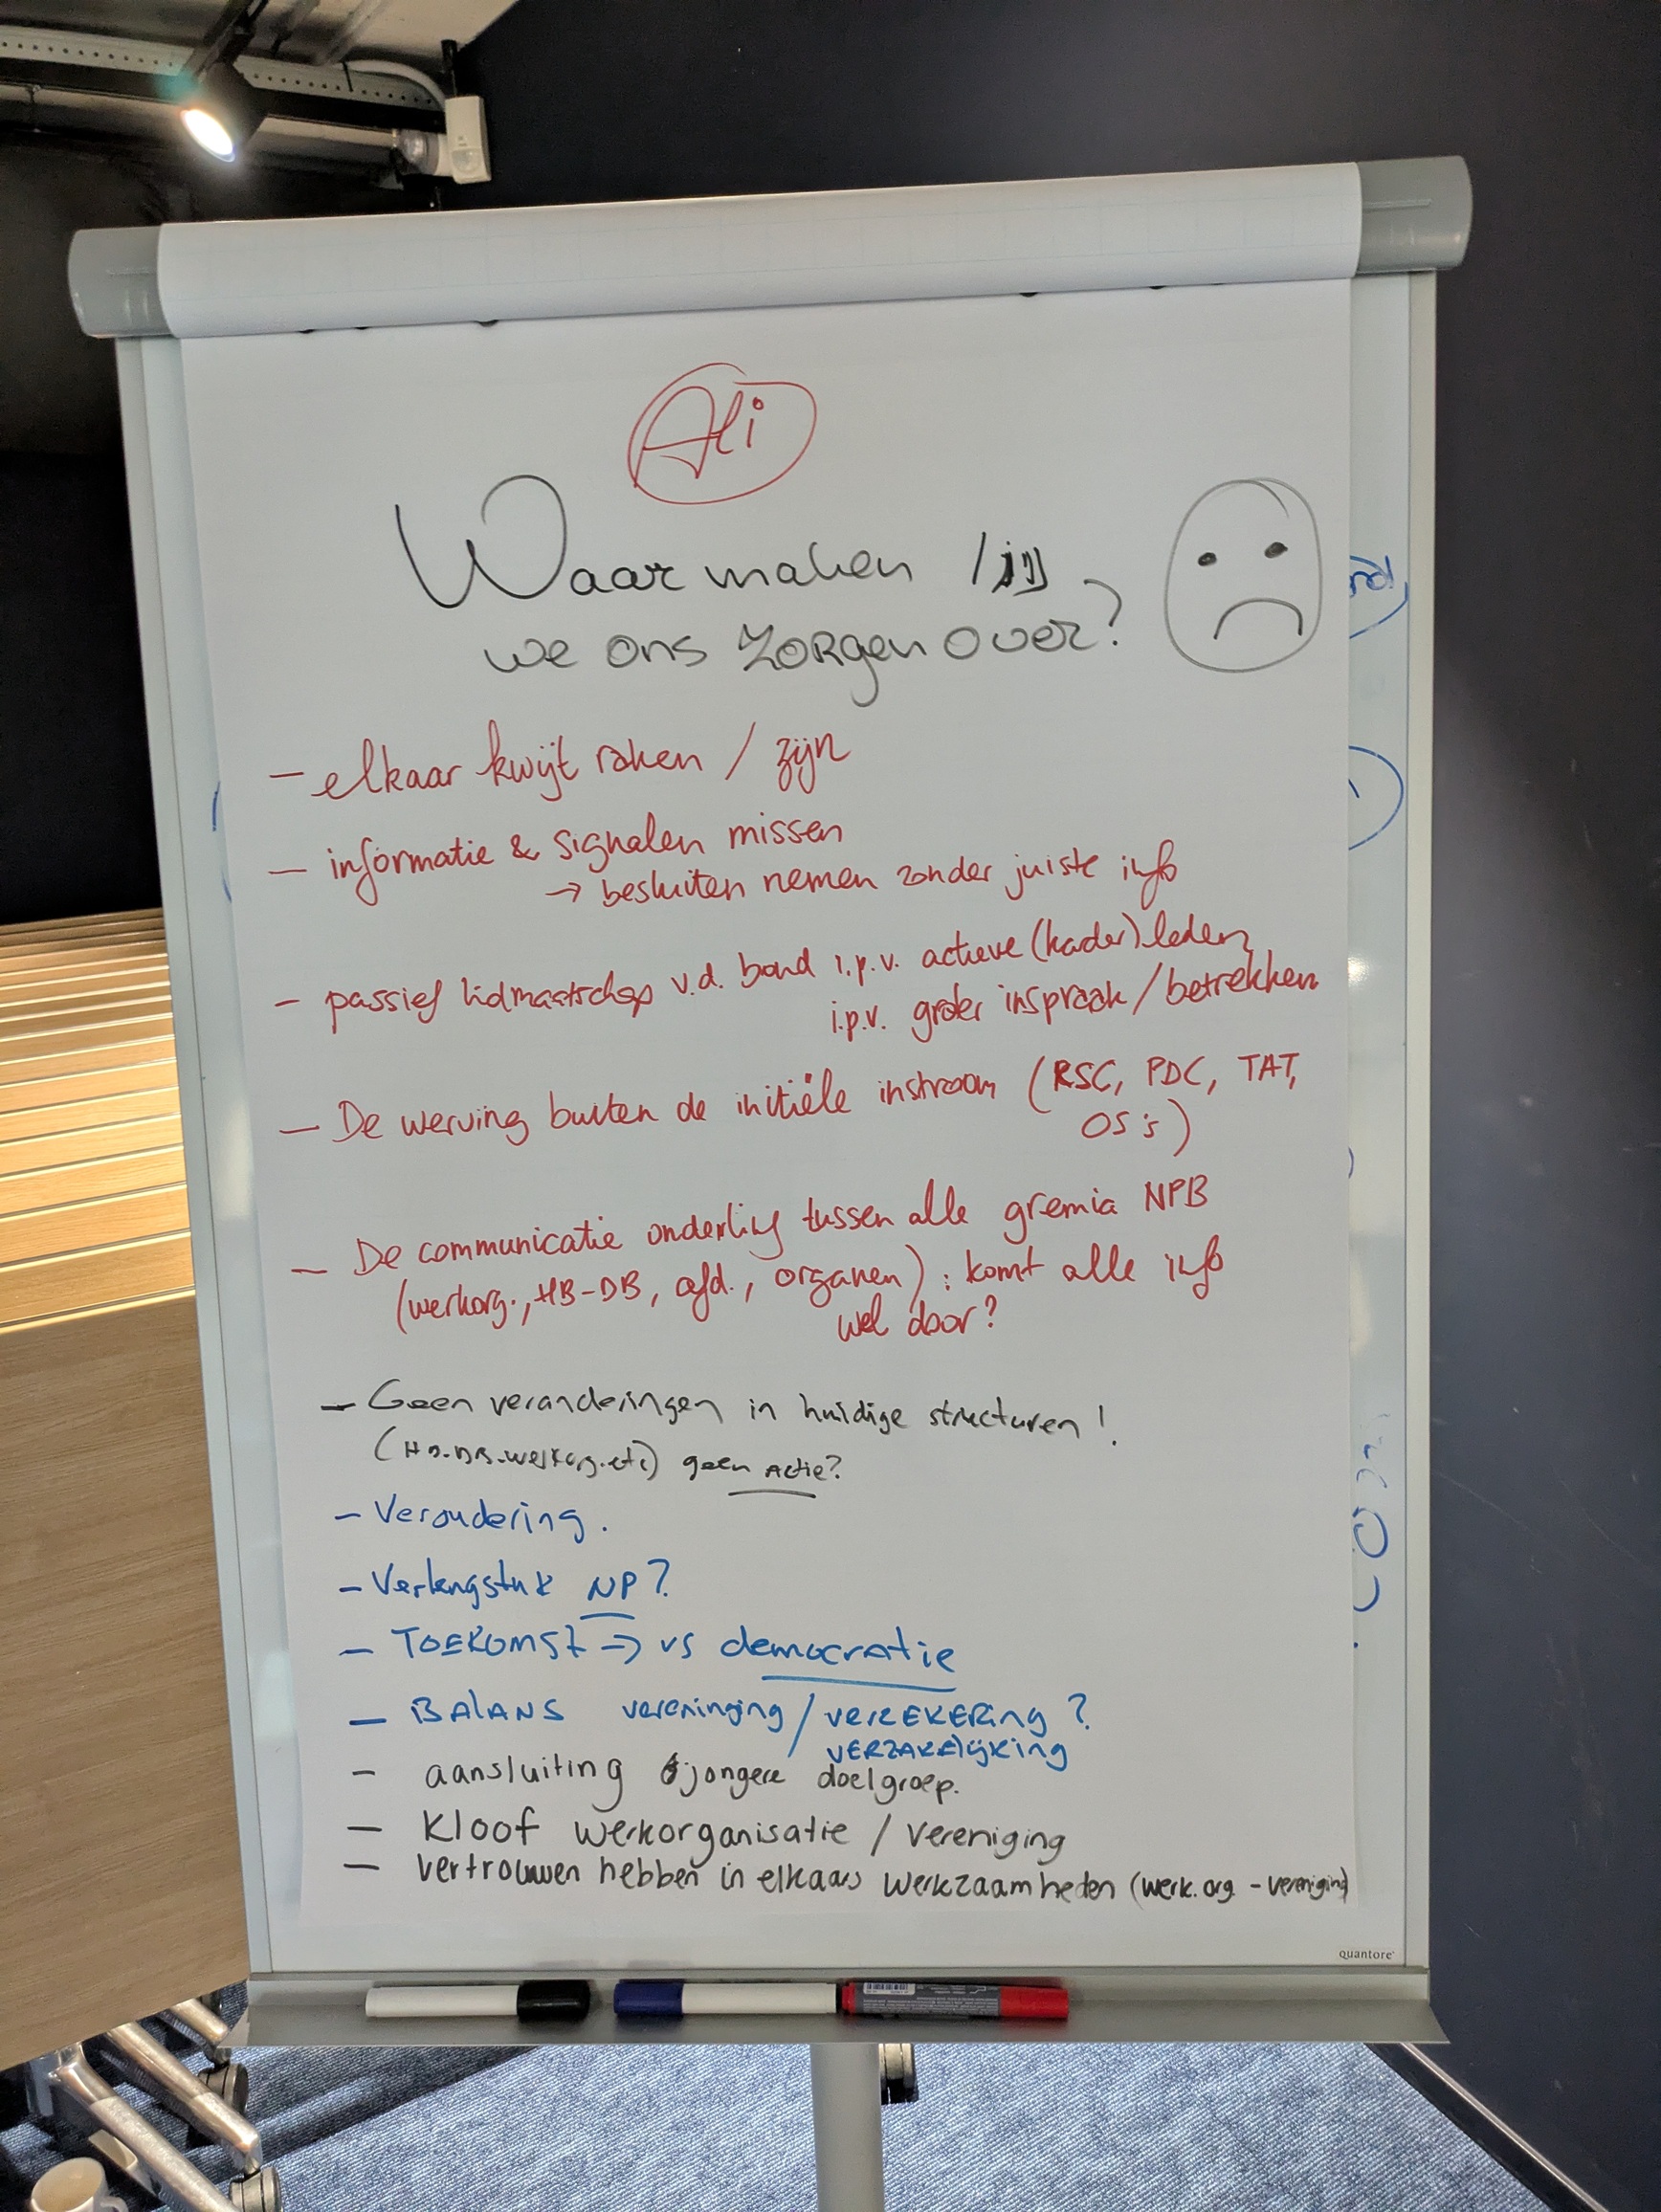 Ali
Waar maken
we ons zorgen over?
- elkaar kwijt raken / zijn
- informatie & signalen missen
→ besluiten nemen zonder juiste info
- passief lidmaatschap v.d. bond i.p.v. actieve (kader) leden
i.p.v. groter inspraak / betrekken
- De werving buiten de initiële instroom (RSC, PDC, TAT,
OS's)
- De communicatie onderling tussen alle gremia NPB
(werkorg., HB-DB, afd., organen) : komt alle info
wel door?
- Geen veranderingen in huidige structuren!
(HB-DB-werkorg.etc) geen actie?
- Veroudering.
- Verlengstuk NP?
- TOEKOMST => vs democratie
- BALANS vereninging / verzekering?
VERZAKELIJKING
- aansluiting jongere doelgroep.
- Kloof werkorganisatie / vereniging
- vertrouwen hebben in elkaars werkzaamheden (werk.org - vereniging)
quantore